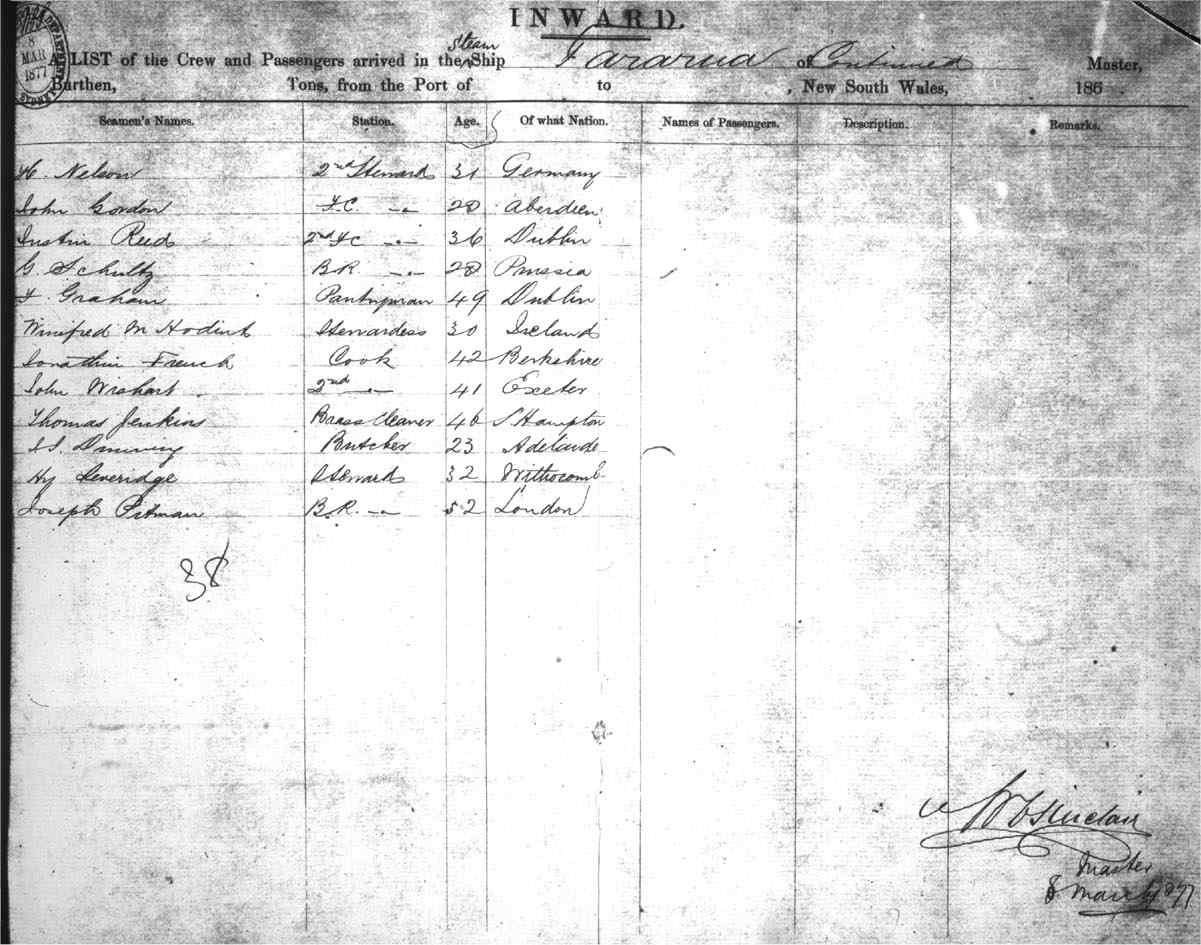 INWARD.
8 MAR 1877
A LIST of the Crew and Passengers arrived in the Steam Ship Tararua of Continued Master,
Burthen, Tons, from the Port of to , New South Wales, 186 .
Seamen's Names. Station. Age. Of what Nation. Names of Passengers. Description. Remarks.
H. Nelson 2nd Steward 31 Germany
John Gordon F.C. -"- 28 Aberdeen
Justin Reed 2nd F.C. -"- 36 Dublin
G. Schultz B.R. -"- 28 Prussia
F. Graham Pantryman 49 Dublin
Winifred M Stewardess 30 Ireland
French Cook 42 Berkshire
John 2nd -"- 41 Exeter
Thomas Jenkins Brass Cleaner 46 S'Hampton
Butcher 23 Adelaide
Hy Leveridge Steward 32
Joseph Pitman B.R. -"- 52 London
38
Sinclair
Master
8 March 1877